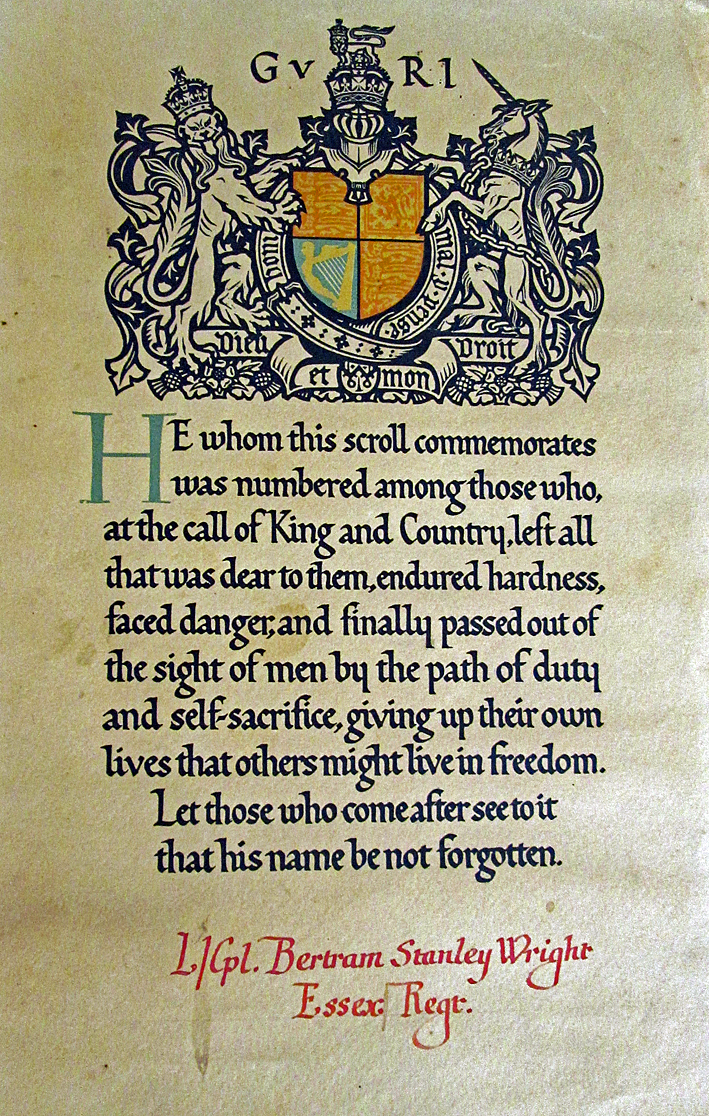 GV RI
honi
mal·y·pense
Dieu
Droit
et mon
HE whom this scroll commemorates
was numbered among those who,
at the call of King and Country, left all
that was dear to them, endured hardness,
faced danger, and finally passed out of
the sight of men by the path of duty
and self-sacrifice, giving up their own
lives that others might live in freedom.
Let those who come after see to it
that his name be not forgotten.
L/Cpl. Bertram Stanley Wright
Essex Regt.